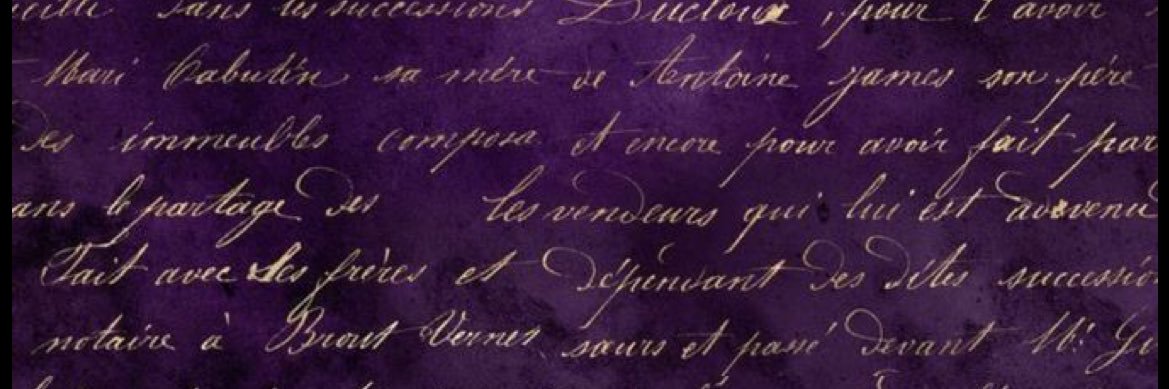 sans les successions Ducloux, pour l'avoir
Mari Cabutin sa mère de Antoine James son père
Des immeubles composa et encore pour avoir fait par
ans le partage Des les vendeurs qui lui est advenu
Fait avec Les frères et Dépendant Des Dites successio
notaire à Brout Vernet sœurs et passé Devant Me